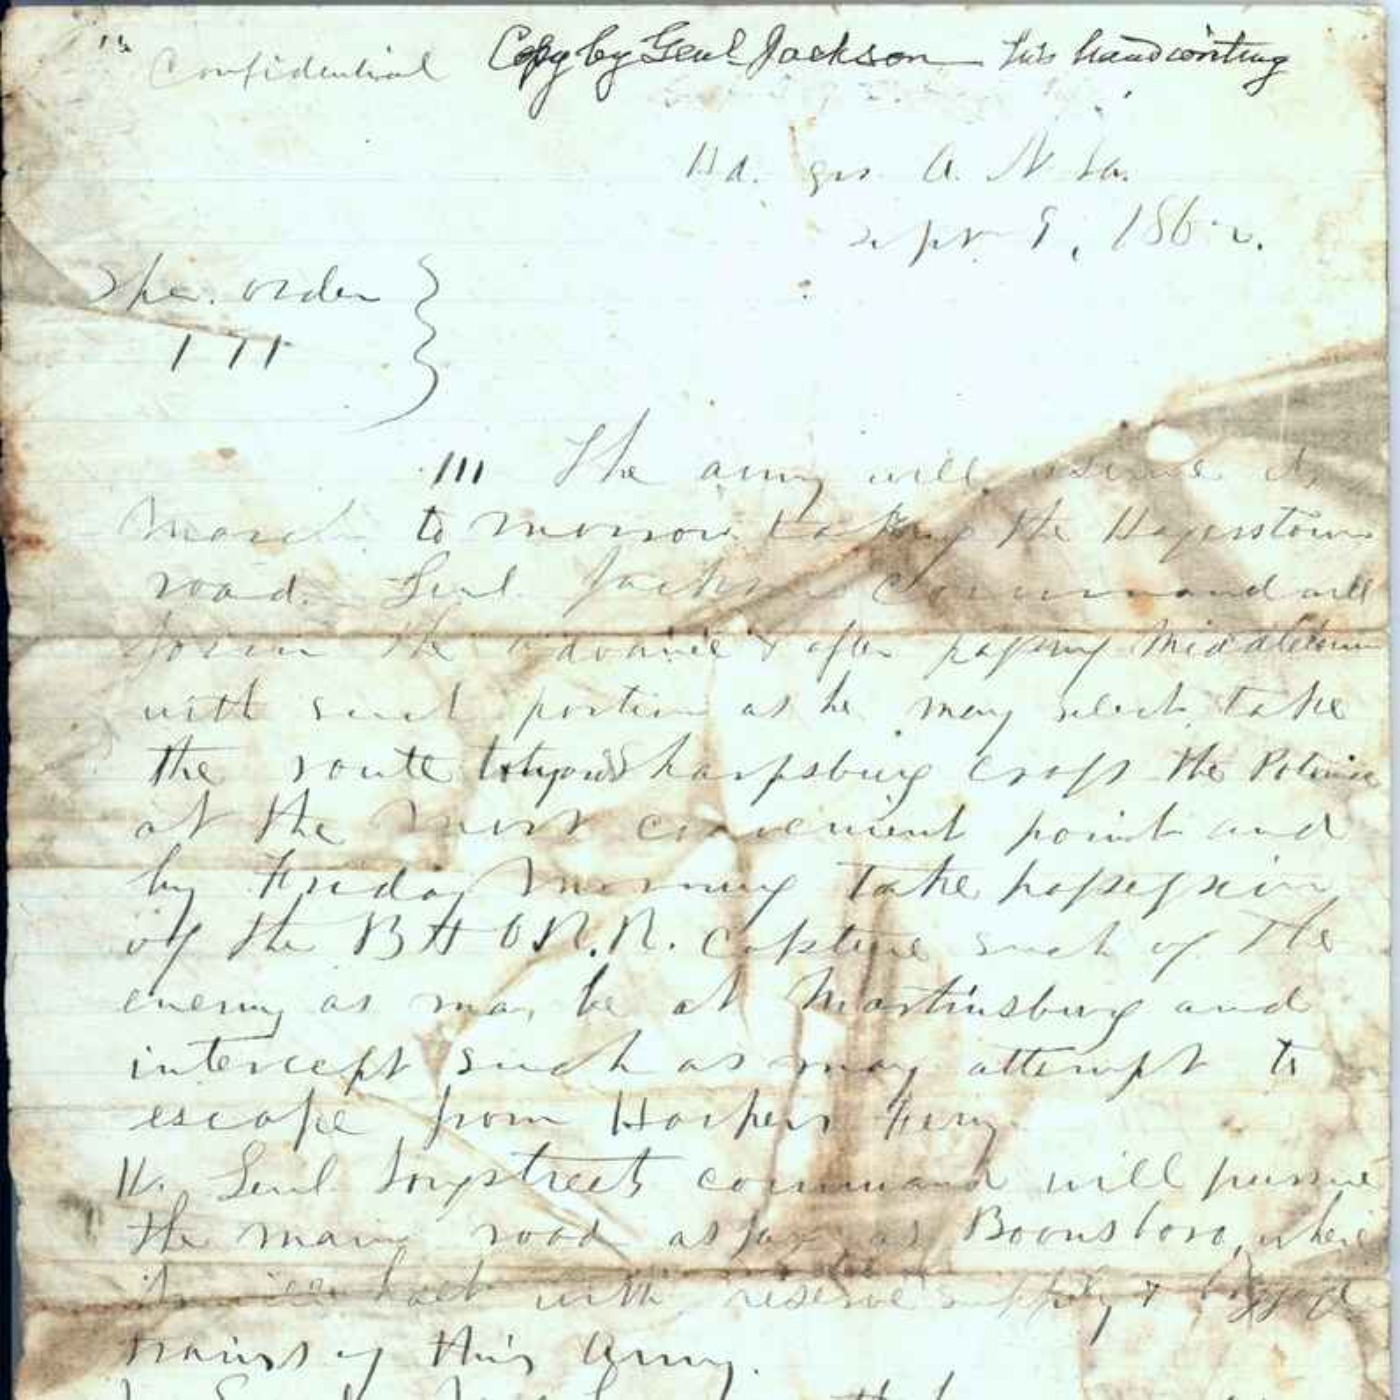 Confidential Copy by Genl Jackson his handwriting
Hd. qrs A. N Va.
Sept 9, 1862.
Spe. order
191
III The army will resume its
March to morrow taking the Hagerstown
road. Genl. Jackson command will
form the advance & after passing Middletown
with such portion as he may select take
the route toward Sharpsburg cross the Potomac
at the most convenient point and
by Friday morning take possession
of the B & O R.R. capture such of the
enemy as may be at Martinsburg and
intercept such as may attempt to
escape from Harpers Ferry.
IV. Genl Longstreets command will pursue
the main road as far as Boonsboro, where
it will halt with reserve supply & baggage
trains of this Army.